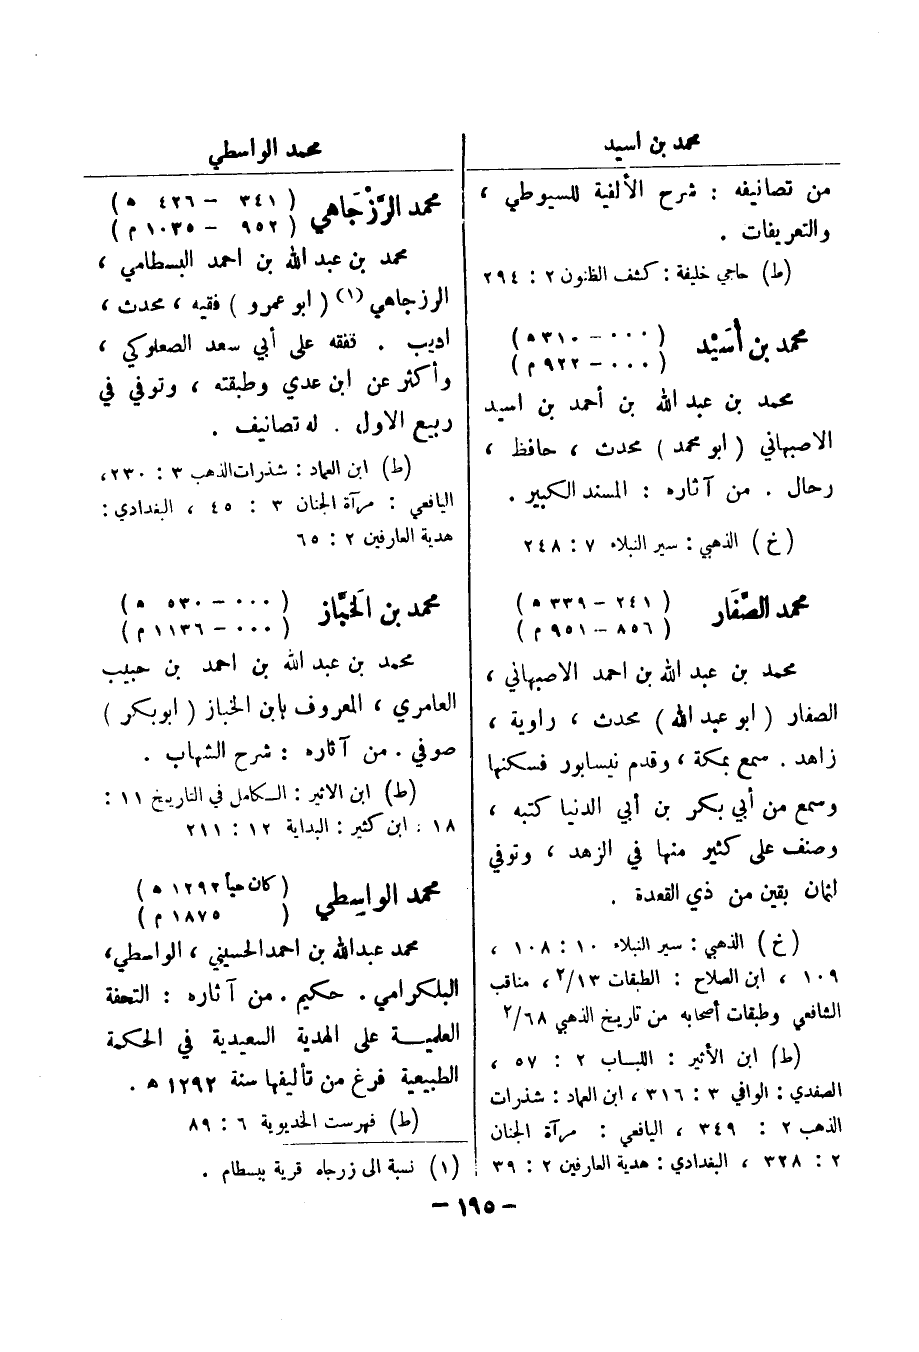 محمد بن اسيد
من تصانيفه : شرح الألفية للسيوطي ،
والتعريفات .
(ط) حاجي خليفة : كشف الظنون ٢ : ٢٩٤
محمد بن أُسَيْد (٠٠٠ - ٣١٠ ه)
(٠٠٠ - ٩٢٢ م)
محمد بن عبد الله بن أحمد بن اسيد
الاصبهاني (ابو محمد) محدث ، حافظ ،
رحال . من آثاره : المسند الكبير .
(خ) الذهبي : سير النبلاء ٧ : ٢٤٨
محمد الصَّفَار (٢٤١ - ٣٣٩ ه)
(٨٥٦ - ٩٥١ م)
محمد بن عبد الله بن احمد الاصبهاني ،
الصفار (ابو عبد الله) محدث ، راوية ،
زاهد . سمع بمكة ، وقدم نيسابور فسكنها
وسمع من أبي بكر بن أبي الدنيا كتبه ،
وصنف على كثير منها في الزهد ، وتوفي
لثمان بقين من ذي القعدة .
(خ) الذهبي : سير النبلاء ١٠ : ١٠٨ ،
١٠٩ ، ابن الصلاح : الطبقات ٢/١٣ ، مناقب
الشافعي وطبقات أصحابه من تاريخ الذهبي ٢/٦٨
(ط) ابن الأثير : اللباب ٢ : ٥٧ ،
الصفدي : الوافي ٣ : ٣١٦ ، ابن العماد : شذرات
الذهب ٢ : ٣٤٩ ، اليافعي : مرآة الجنان
٢ : ٣٢٨ ، البغدادي : هدية العارفين ٢ : ٣٩
محمد الواسطي
محمد الرَّزْجَاهي (٣٤١ - ٤٢٦ ه)
(٩٥٢ - ١٠٣٥ م)
محمد بن عبد الله بن احمد البسطامي ،
الرزجاهي (١) (ابو عمرو) فقيه ، محدث ،
اديب . تفقه على أبي سعد الصعلوكي ،
وأكثر عن ابن عدي وطبقته ، وتوفي في
ربيع الاول . له تصانيف .
(ط) ابن العماد : شذرات الذهب ٣ : ٢٣٠ ،
اليافعي : مرآة الجنان ٣ : ٤٥ ، البغدادي :
هدية العارفين ٢ : ٦٥
محمد بن الخَبَّاز (٠٠٠ - ٥٣٠ ه)
(٠٠٠ - ١١٣٦ م)
محمد بن عبد الله بن احمد بن حبيب
العامري ، المعروف بابن الخباز (ابو بكر)
صوفي . من آثاره : شرح الشهاب .
(ط) ابن الاثير : الكامل في التاريخ ١١ :
١٨ . ابن كثير : البداية ١٢ : ٢١١
محمد الواسِطي (كان حياً ١٢٩٢ ه)
(١٨٧٥ م)
محمد عبدالله بن احمد الحسيني ، الواسطي ،
البلكرامي . حكيم . من آثاره : التحفة
العلمية على الهدية السعيدية في الحكمة
الطبيعية فرغ من تأليفها سنة ١٢٩٢ ه .
(ط) فهرست الخديوية ٦ : ٨٩
(١) نسبة الى زرجاه قرية ببسطام .
- ١٩٥ -